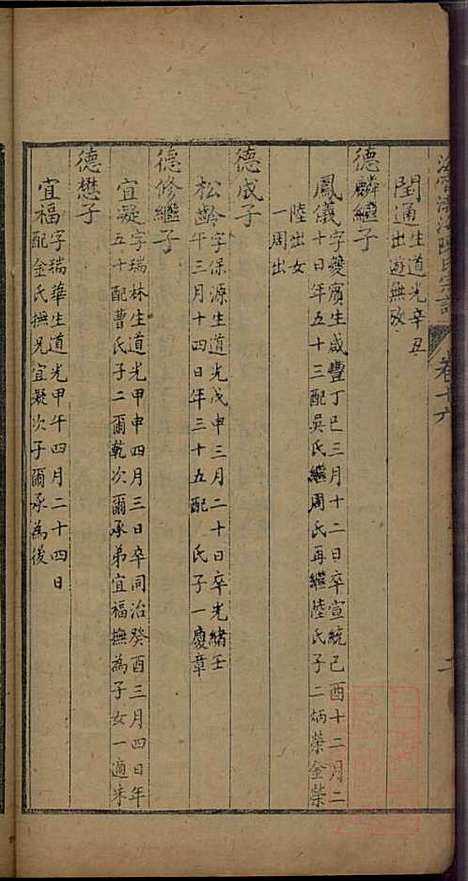 陳氏宗譜
卷十六
二
閏通生道光辛丑
出遊無攷
德麟繼子
鳳儀字夔賓生咸豐丁巳三月十二日卒宣統己酉十二月二
十日年五十三配吳氏繼周氏再繼陸氏子二炳榮金榮
陸出女
一周出
德成子
松齡字保源生道光戊申三月二十日卒光緒壬
午三月十四日年三十五配 氏子一慶章
德修繼子
宜凝字瑞林生道光甲申四月三日卒同治癸酉三月四日年
五十配曹氏子二爾乾次爾承弟宜福撫為子女一適朱
德懋子
宜福字瑞華生道光甲午四月二十四日
配金氏撫兄宜凝次子爾承為後